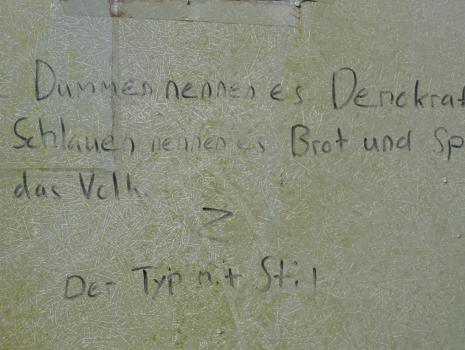 Dummen nennen es Demokrat
Schlauen nennen es Brot und Sp
das Volk.
Der Typ mit Stil